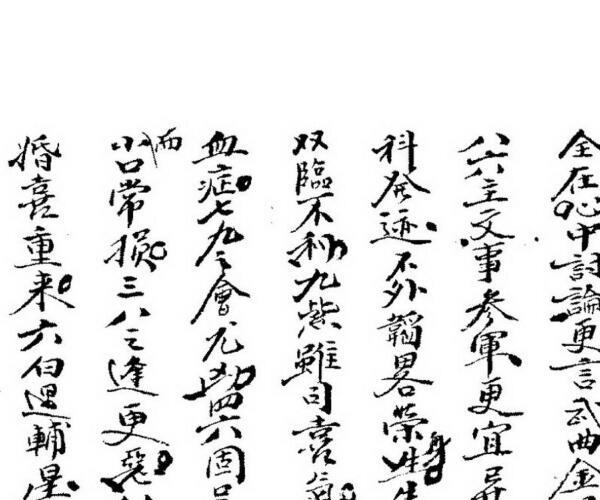 全在心中討論更言武曲金
八六主文事參軍更宜
科發迹不外韜畧榮身生
双臨不利九紫雖司喜氣
血症七九之會尤凶四六固
而小口常損三八之逢更惡
婚喜重来六白逞輔星